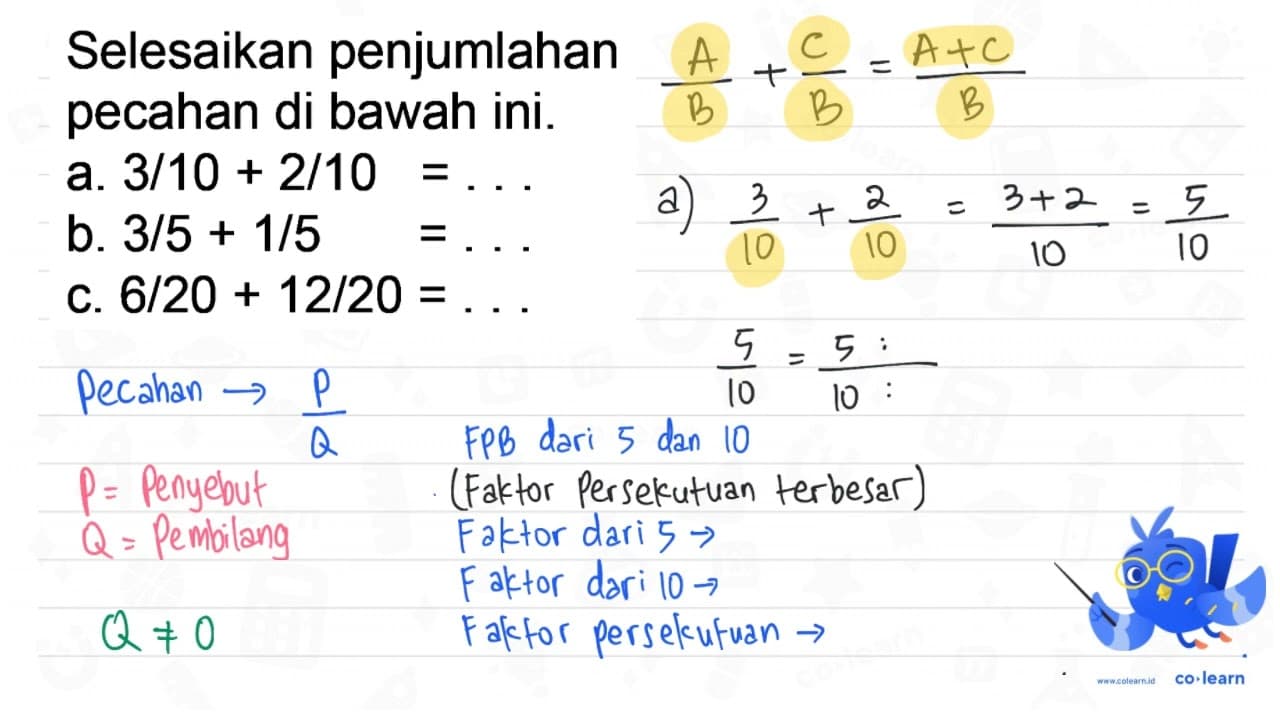 Selesaikan penjumlahan
pecahan di bawah ini.
a. 3/10 + 2/10 = . . .
b. 3/5 + 1/5 = . . .
c. 6/20 + 12/20 = . . .
A/B + C/B = A+C/B
a) 3/10 + 2/10 = 3+2/10 = 5/10
5/10 = 5 :/10 :
Pecahan → P/Q
P = Penyebut
Q = Pembilang
Q ≠ 0
FPB dari 5 dan 10
(Faktor Persekutuan terbesar)
Faktor dari 5 →
Faktor dari 10 →
Faktor persekutuan →
www.colearn.id co·learn